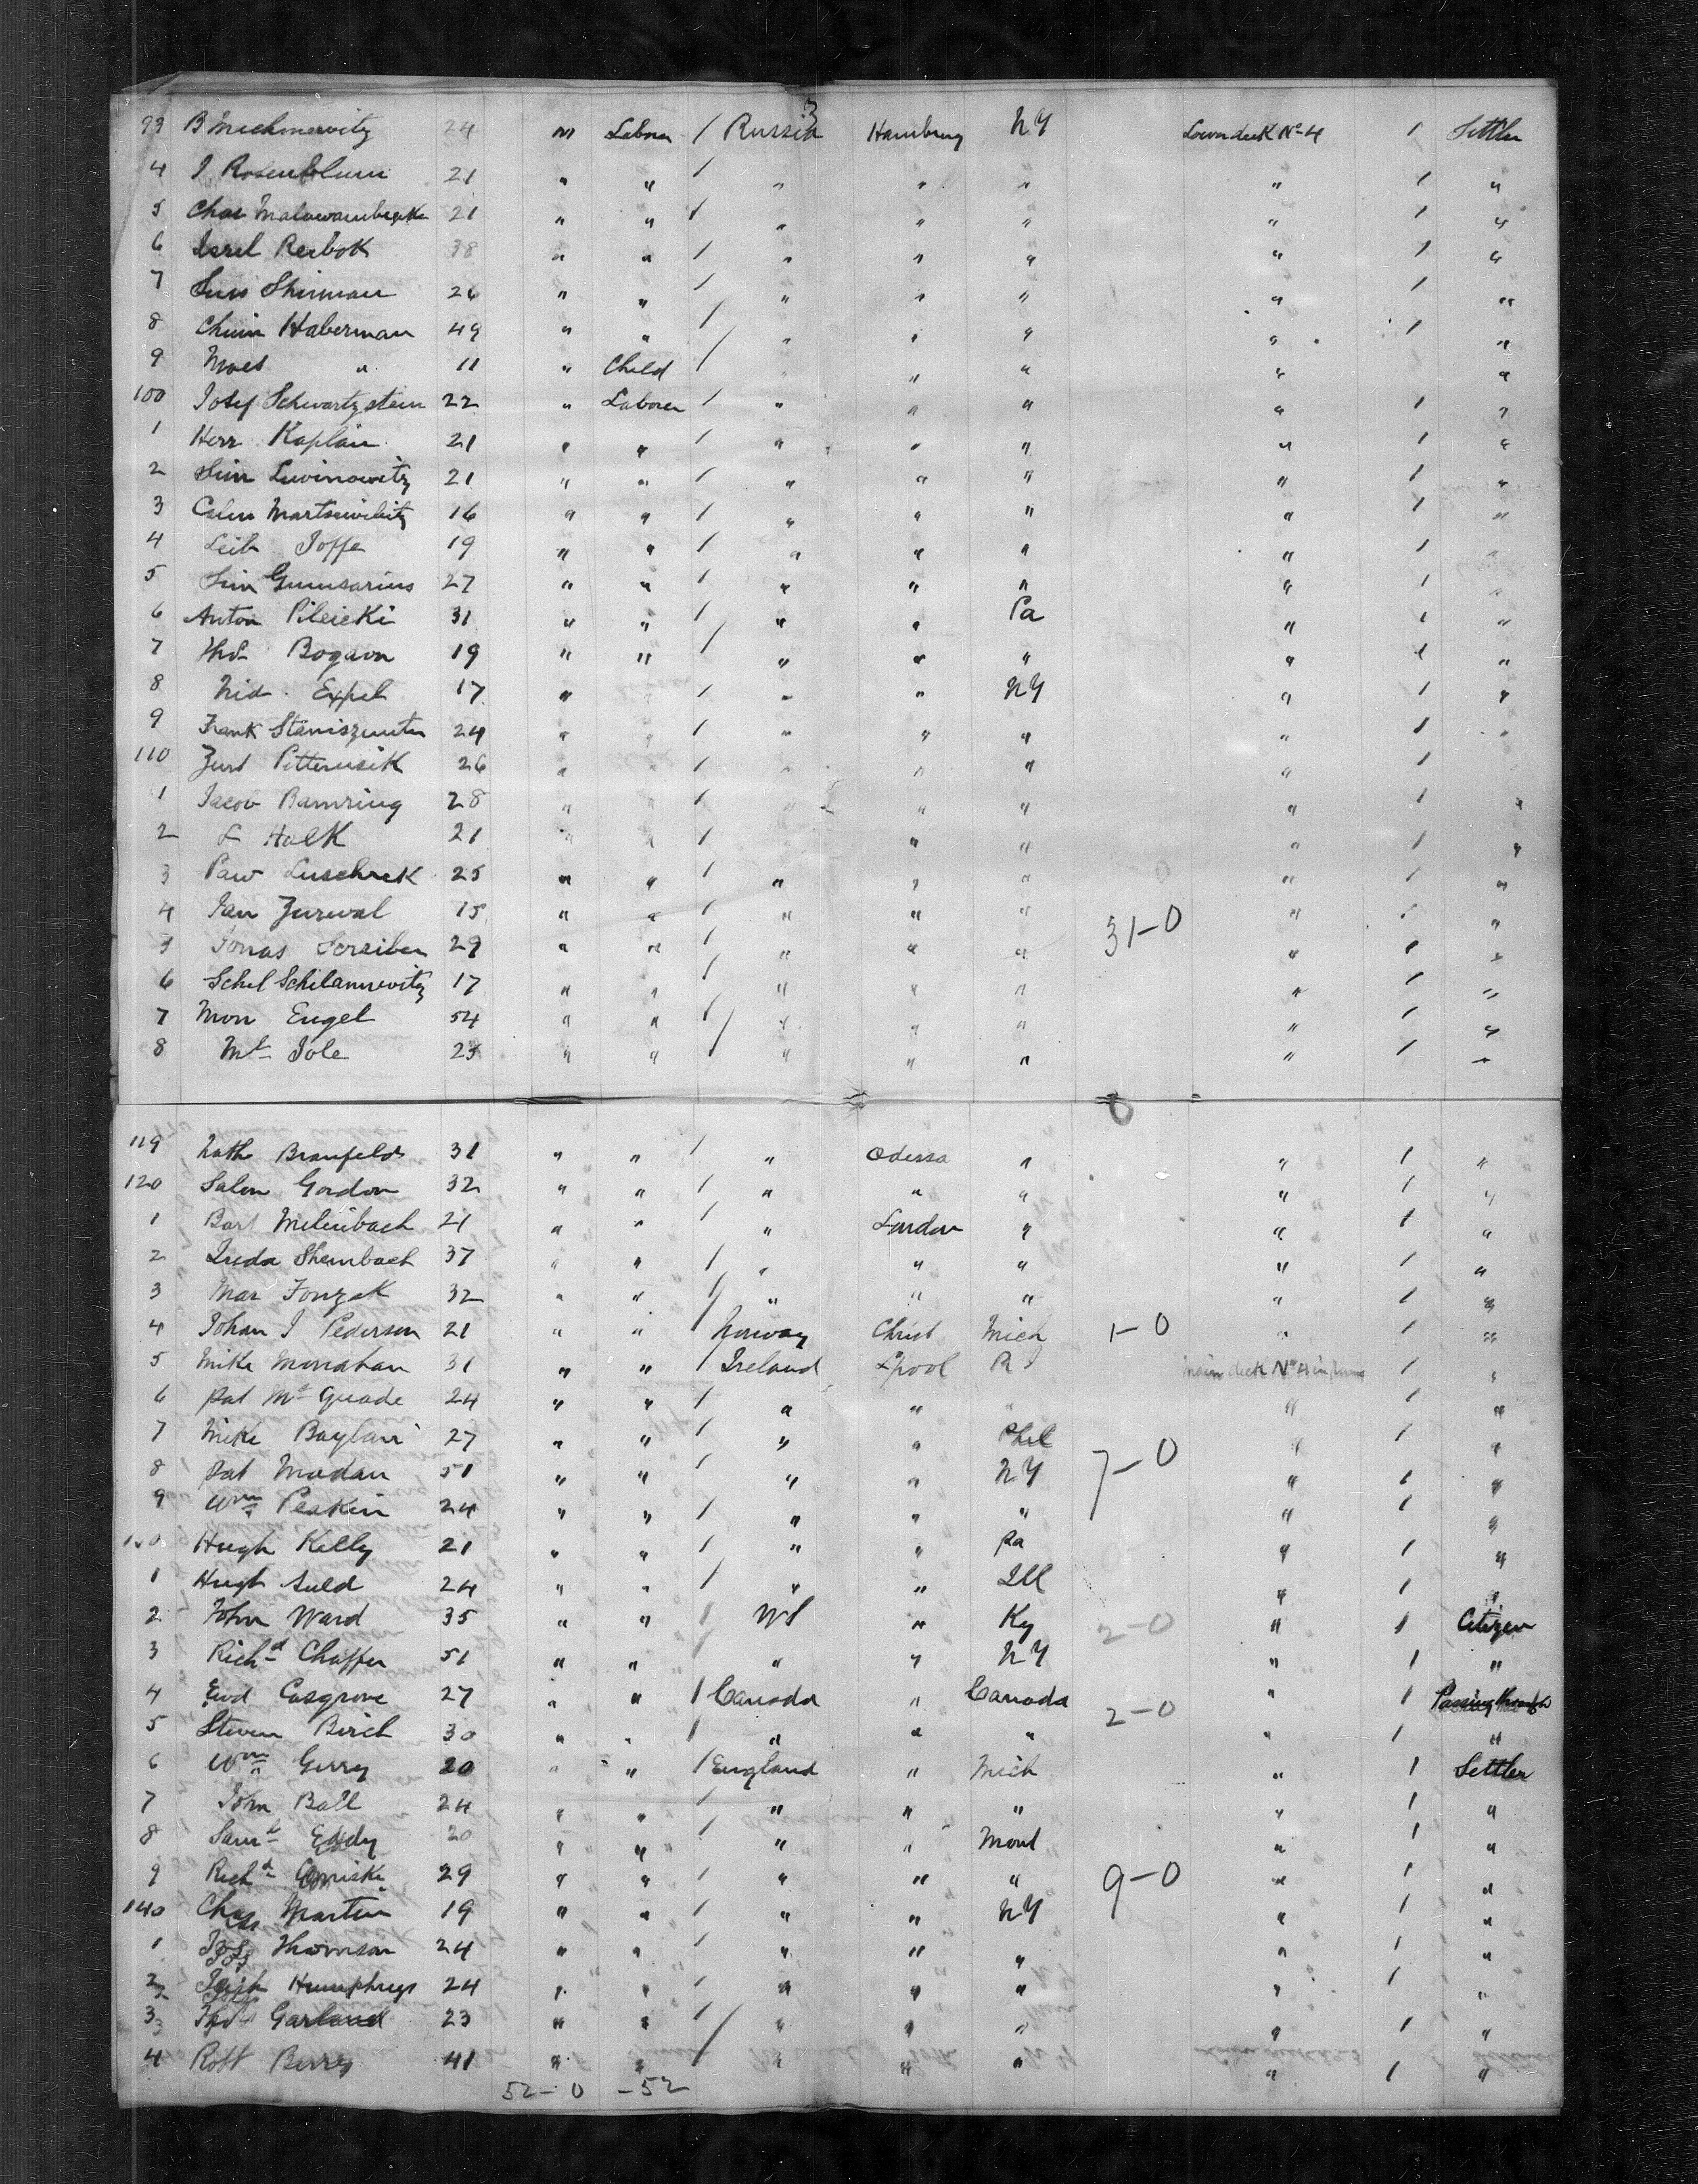 3
93 B 24 m Laborer / Russia Hamburg NY Lower deck No 4 1 Settler
4 I Rosenblum 21 " " / " " " " 1 "
5 Chas 21 " " / " " " " 1 "
6 Isrel Reibok 38 " " / " " " " 1 "
7 Shirman 26 " " / " " " " 1 "
8 Chaim Haberman 49 " " / " " " " 1 "
9 Moes " 11 " Child / " " " " "
100 Josef Schwartzstein 22 " Laborer / " " " " 1 "
1 Herz Kaplan 21 " " / " " " " 1 "
2 Sim Lewinowitz 21 " " / " " " " 1 "
3 16 " " / " " " " 1 "
4 Leib Joffe 19 " " / " " " " 1 "
5 Sim 27 " " / " " " " 1 "
6 Anton Pileicki 31 " " / " " Pa " 1 "
7 Bogavn 19 " " / " " " " 1 "
8 Nid. Expel 17 " " / " " NY " 1 "
9 Frank 24 " " / " " " " 1 "
110 Pitterusik 26 " " / " " " " 1
1 Jacob Bamring 28 " " / " " " " 1 "
2 Halk 21 " " / " " " 1 "
3 Paw Luschrek 25 " " / " " " " 1 "
4 Jan Zurwal 15 " " / " " " 31-0 " 1 "
5 Jonas 29 " " / " " " " 1 "
6 Schel Schilannevitz 17 " " / " " " " 1 "
7 Mon Engel 54 " " / " " " " 1 "
8 Jole 25 " " / " " " " 1 "
0
119 Nath Braufeld 31 " " / " Odessa " " 1 "
120 Salem Gordon 32 " " / " " " " 1 "
1 Bart 21 " " / " London " " 1 "
2 Sheinbach 37 " " / " " " " 1 "
3 Mar Fonzak 32 " " / " " " " 1 "
4 Johan J Pederson 21 " " / Norway Christ Mich 1-0 " 1 "
5 Mike Monahan 31 " " / Ireland Lpool R I Main deck No 4 1 "
6 Pat McQuade 24 " " / " " " " 1 "
7 Mike Boylan 27 " " / " " Phil " 1 "
8 Pat Madan 51 " " / " " NY 7-0 " 1 "
9 Wm Peakin 24 " " / " " " " 1 "
130 Hugh Kelly 21 " " / " " Pa " 1 "
1 Hugh Auld 24 " " / " " Ill " 1 "
2 John Ward 35 " " / US " Ky 2-0 " 1 Citizen
3 Richd Chaffer 51 " " / " " NY " 1 "
4 Ewd Cosgrove 27 " " / Canada " Canada 2-0 " 1 Passing through
5 Steven Birch 30 " " / " " " " 1 "
6 Wm Gerry 20 " " / England " Mich " 1 Settler
7 John Ball 24 " " / " " " " 1 "
8 Saml Eddy 20 " " / " " Mont " 1 "
9 Richd 29 " " / " " " 9-0 " 1 "
140 Chas Martin 19 " " / " " NY " 1 "
1 Jos Thomson 24 " " / " " " " 1 "
2 Humphreys 24 " " / " " " " 1 "
3 Garland 23 " " / " " " " 1 "
4 Robt Berry 41 " " / " " " " 1 "
52-0 -52